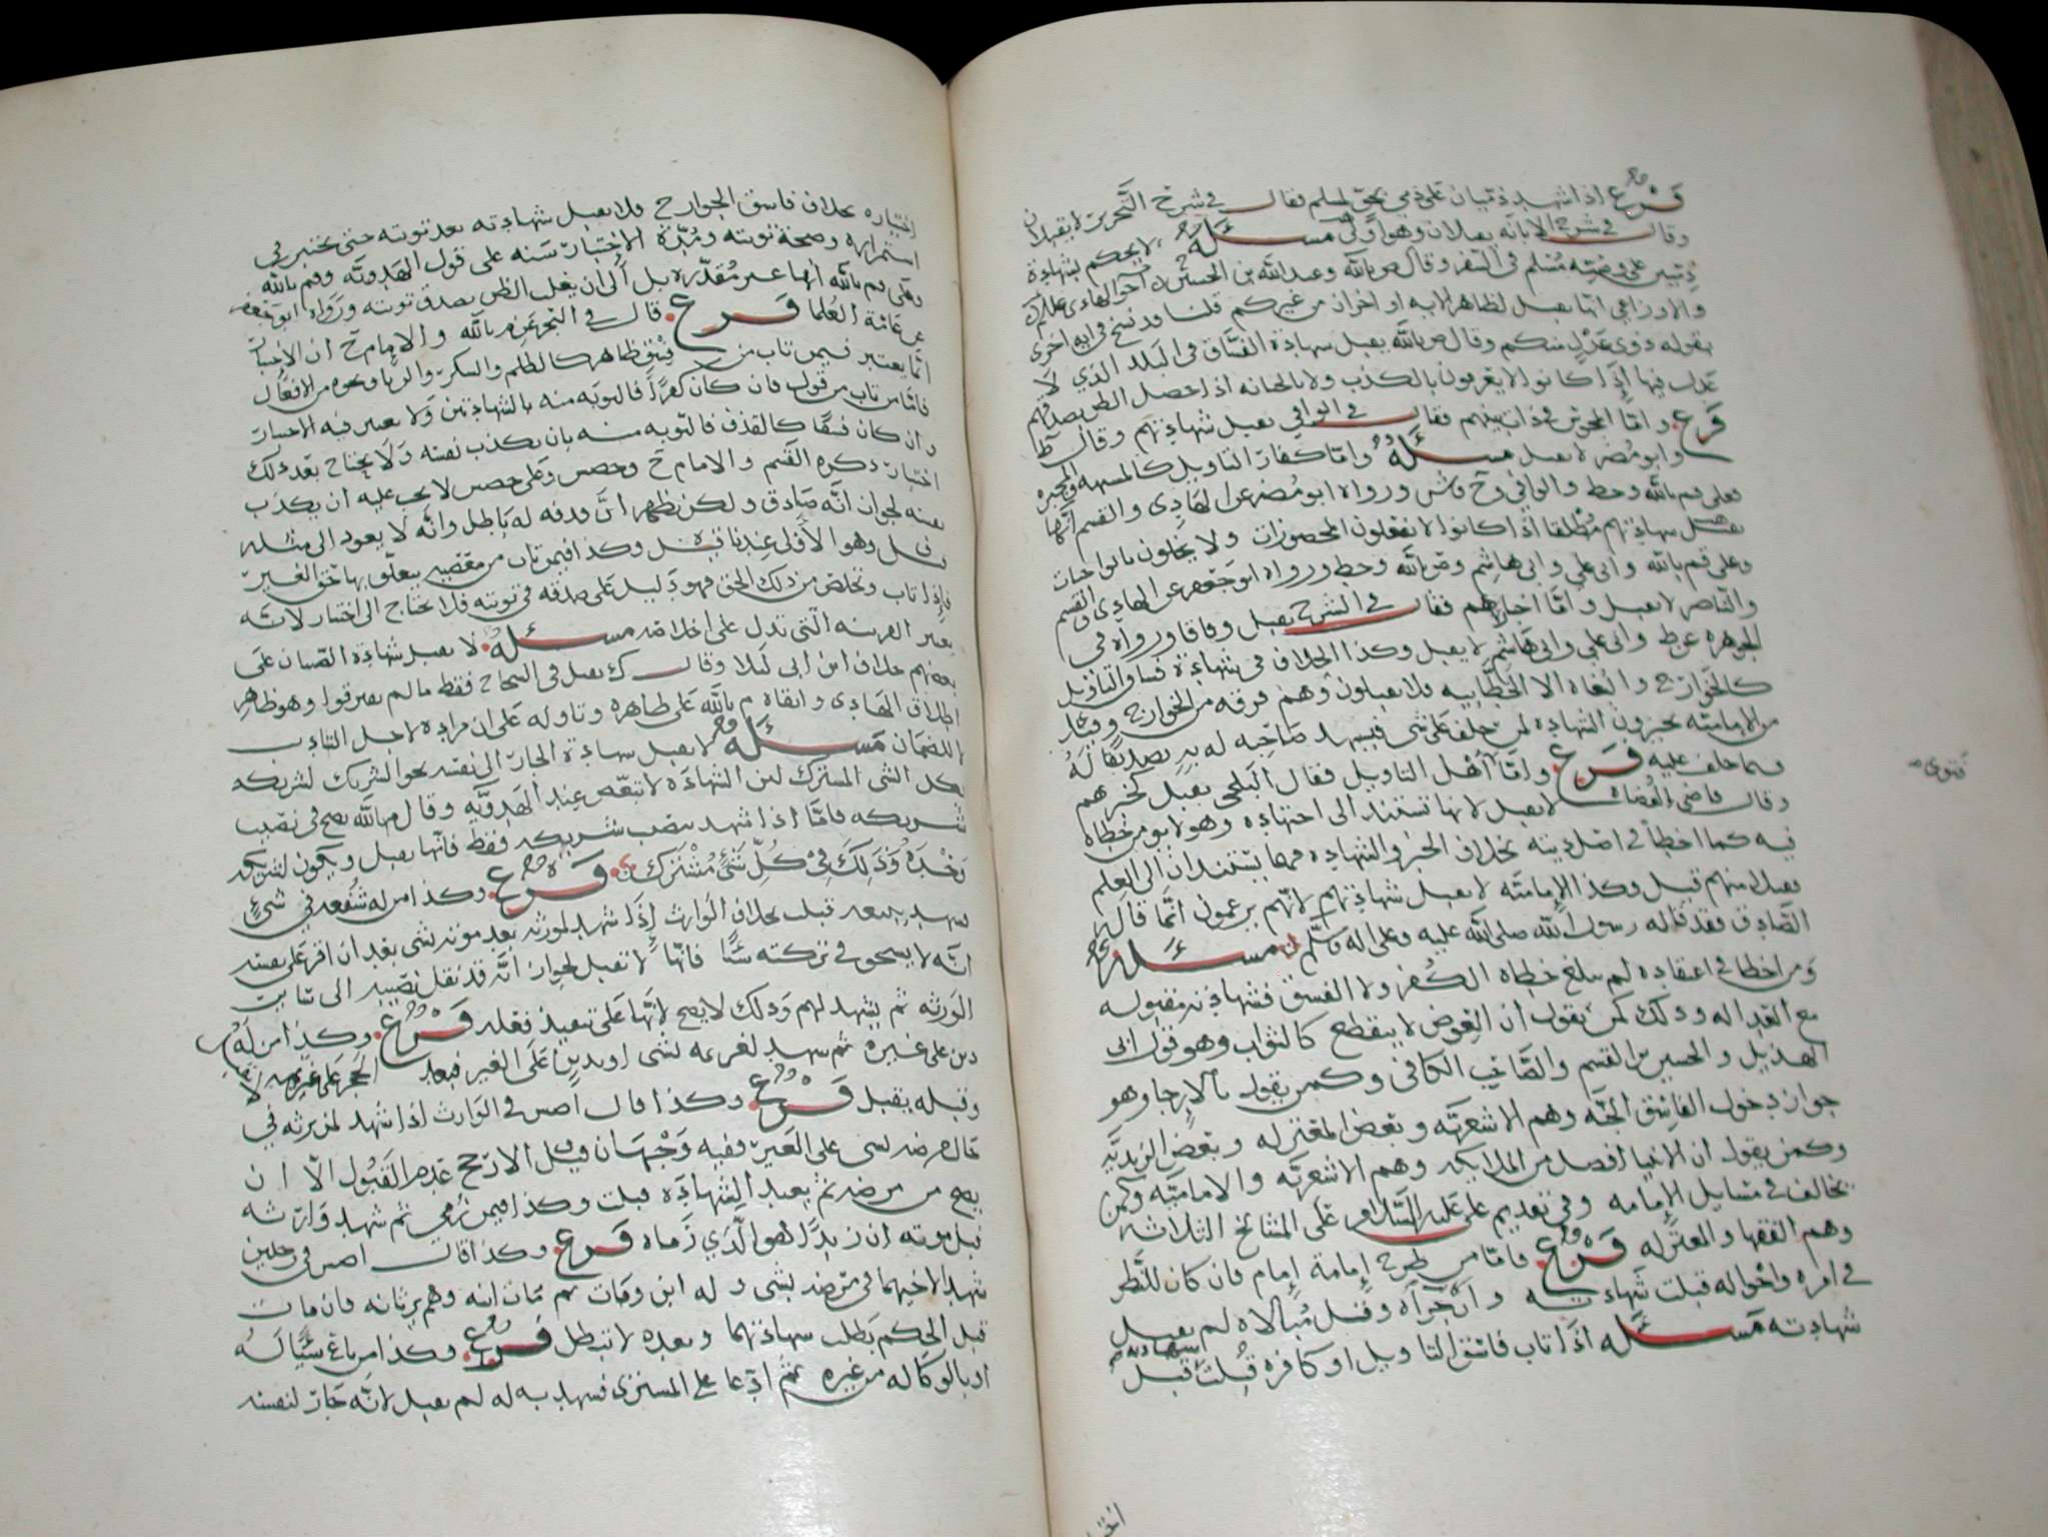 فرع اذا شهد ذميان على ذمي بحق لمسلم فقال في شرح التحرير لا يقبلان
وقال في شرح الابانه يقبلان وهو أولى مسئلة لا يحكم بشهادة
ذميين على وصية مسلم في السفر وقال م بالله وعبد الله بن الحسين اخو الهادي عللم
والاوزاعي انها تقبل لظاهر الايه او اخران من غيركم قلنا قد نسخ في ايه اخرى
بقوله ذوي عدل منكم وقال م بالله يقبل شهادة الفساق في البلد الذي لا
عدل فيها إذا كانوا لا يعرفون بالكذب ولا بالخيانه اذا حصل الظن بصدقهم
فرع واما المجوس في ذات بينهم فقال في الوافي يقبل شهادتهم وقال ط
وابو مضر لا يقبل مسئلة واما كفار التاويل كالمشبهه والمجبره
فعلى قم بالله وحط والوافي وح وش ورواه ابو مضر عن الهادي والقسم انها
تقبل شهادتهم مطلقا اذا كانوا لا يفعلون المحضورات ولا يخلون بالواجبات
وعلى قم بالله وابى علي وابى هاشم وم بالله وحط ورواه ابو جعفر عن الهادي والقسم
والناصر لا يقبل واما اخبارهم فقال في الشرح يقبل وفاقا ورواه في
الجوهره عن ط وابى علي وابى هاشم لا يقبل وكذا الخلاف في شهادة فساق التاويل
كالخوارج والبغاه الا الخطابيه فلا يقبلون وهم فرقه من الخوارج وقيل
من الإماميه يجيزون الشهاده لمن حلف على شى فيشهد صاحبه له به تصديقا له
فيما حلف عليه فرع واما اهل التاويل فقال البلخي يقبل كخبرهم
وقال قاضي القضاة لا يقبل لانها تستند الى اجتهاده وهو لا يومن خطاه
فيه كما اخطأ في اصل دينه بخلاف الخبر والشهاده فهما يستندان الى العلم
فيقبل منهم قيل وكذا الإماميه لا يقبل شهادتهم لانهم يزعمون انما قاله
الصادق فقد قاله رسول الله صلى الله عليه وعلى اله وسلم مسئلة
ومن اخطا في اعتقاده لم يبلغ خطاه الكفر ولا الفسق فشهادته مقبوله
مع العداله وذلك كمن يقول ان العوض لا ينقطع كالثواب وهو قول ابى
الهذيل والحسين بن القسم والصاحب الكافى وكمن يقول بالإرجا وهو
جواز دخول الفاسق الجنه وهم الاشعريه وبعض المعتزله وبعض الزيديه
وكمن يقول ان الانبيا افضل من الملايكه وهم الاشعريه والاماميه وكمن
يخالف في مسايل الإمامه وفي تقديم علي عليه السلام على المشائخ الثلاثه
وهم الفقها والمعتزله فرع فاما من طرح إمامة إمام فان كان للنظر
في امره واحواله قبلت شهادته وان جرأه وقله مبالاه لم يقبل
شهادته مسئلة اذا تاب فاسق التاويل او كافره قبلت شهادته قبل
فتوى
اختباره بخلاف فاسق الجوارح فلا يقبل شهادته بعد توبته حتى يختبر في
استمراره وصحة توبته ومدة الاختبار سنه على قول الهدويه وقم بالله
وعلى قم بالله انها غير مقدره بل ألى أن يغلب الظن بصدق توبته ورواه ابو جعفر
عن عامة العلما فرع قال في التجريد عن م بالله والإمام ح ان الاختبار
انما يعتبر فيمن تاب من فسق ظاهر كالظلم والسكر والربا ونحوه من الافعال
فاما من تاب من قول فان كان كفراً فالتوبه منه بالشهادتين ولا يعتبر فيه الاختبار
وان كان فسقا كالقذف فالتوبه منه بان يكذب نفسه ولا يحتاج بعد ذلك
اختبار ذكره القسم والامام ح وحص وعلى حص لا يجب عليه ان يكذب
نفسه لجواز انه صادق ولكن يظهر ان قذفه له باطل وانه لا يعود الى مثله
قيل وهو الأولى عندنا قيل وكذا فيمن تاب من معصيه يتعلق بها حق الغير
فإذا تاب وتخلص من ذلك الحق فهو دليل على صدقه في توبته فلا يحتاج الى اختبار لانه
يعتبر القرينه التي تدل على اخلاصه مسئلة لا يقبل شهادة الصبيان على
بعضهم خلاف ابن ابى ليلا وقال ك يقبل في الشجاج فقط ما لم يفترقوا وهو ظاهر
اطلاق الهادى وابقاه م بالله على ظاهره وتاوله على ان مراده لاجل التاديب
لا للضمان مسئلة لا يقبل شهادة الجار الى نفسه نحو الشريك لشريكه
بكل الشى المشترك لان الشهادة لا تبعض عند الهدويه وقال م بالله يصح في نصيب
شريكه فاما اذا شهد بنصيب شريكه فقط فانها يقبل ويكون لشريكه
وحده وذلك في كل شئ مشترك فرع وكذا من له شفعه في شئ
شهد ببيعه قبلت بخلاف الوارث إذا شهد لمورثه بعد موته بشى بعد ان اقر على نفسه
انه لا يستحق في تركته شئا فانها لا تقبل لجواز انه قد نقل نصيبه الى سائر
الورثه ثم يشهد لهم وذلك لا يصح لانها على تنفيذ فعله فرع وكذا من له
دين على غيره ثم شهد لغريمه بشى او بدين على الغير فبعد الحجر على غريمه لا
وقبله يقبل فرع وكذا قال اصش في الوارث اذا شهد لمن يرثه في
حال مرضه بشى على الغير ففيه وجهان قيل الارجح عدم القبول الا ان
يصح من مرضه ثم يعيد الشهادة قبلت وكذا فيمن رمي ثم شهد وارثه
قبل موته ان زيداً هو الذي رماه فرع وكذا قال اصش في رجلين
شهدا لاخيهما في مرضه بشى وله ابن وقات ثم مات ابنه وهم يرثانه فان مات
قبل الحكم بطلت شهادتهما وبعده لا تبطل فرع وكذا من باع شيئا له
او بالوكاله من غيره ثم ادعا على المشترى فشهد به له لم يقبل لانه جار لنفسه